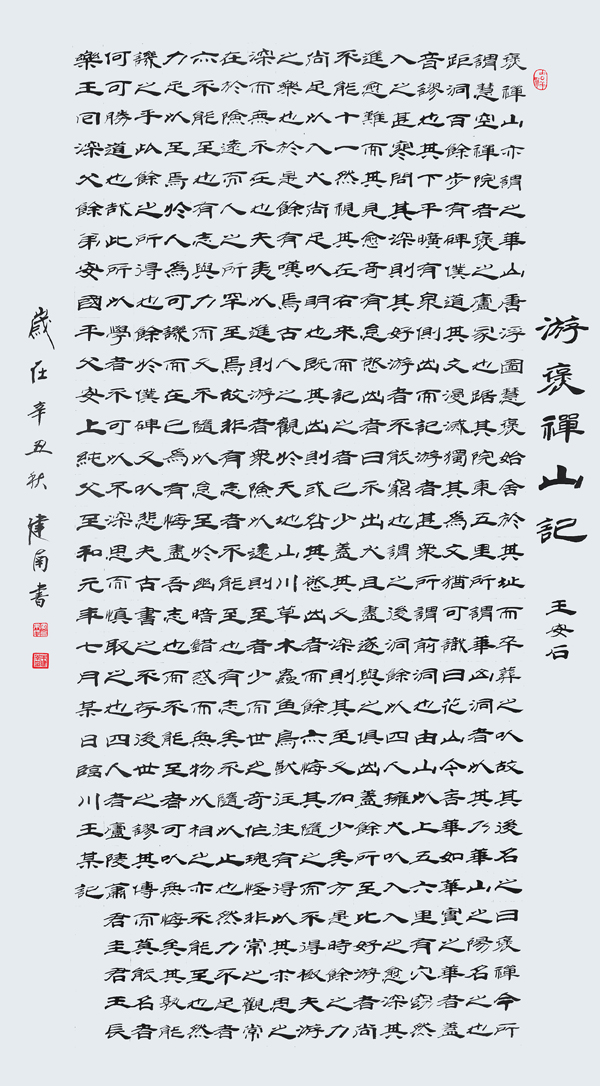 游褒禪山記 王安石
褒禪山亦謂之華山唐浮圖慧褒始舍於其址而卒葬之以故其後名之曰褒禪今所
謂慧空禪院者褒之廬冢也踞其院東五里所謂華山洞者以其乃華山之陽名之也
距洞百餘步有碑僕道其文漫滅獨其為文猶可識曰花山今言華如華實之華者蓋
音謬也其下平曠有泉側出而記游者甚眾所謂前洞也由山以上五六里有穴窈然
入之甚寒問其深則其好游者不能窮也謂之後洞餘以四人擁火以入入之愈深其
進愈難而其見愈奇有怠慾出者曰不出火且盡遂與之俱出蓋餘所至比好游者尚
不能十一然視其左右來而記之者已少蓋其又深則其至又加少矣方是時餘之力
尚足以入火尚足以明也既其出則或咎其慾出者而餘亦悔其隨之而不得極夫游
之樂也於是餘有嘆焉古人之觀於天地山川草木蟲魚鳥獸往往有得以其求思之
深而無不在也夫夷以進則游者眾險以遠則至者少而世之奇偉瑰怪非常之觀常
在於險遠而人之所罕至焉故非有志者不能至也有志矣不隨以止也然力不足者
亦不能至也有志與力而又不隨以怠至於幽暗惑而無物以相之亦不能至也然
力足以至焉於人為可譏而在己為有悔盡吾志也而不能至者可以無悔矣其孰能
譏之乎此餘之所得也餘於僕碑又以悲夫古書之不存後世之謬其傳而莫能名者
何可勝道也哉此所以學者不可以不深思而慎取之也四人者廬陵蕭君圭君玉長
樂王回深父餘弟安國平父安上純父至和元年七月某日臨川王某記
歲在辛丑秋 建甬書